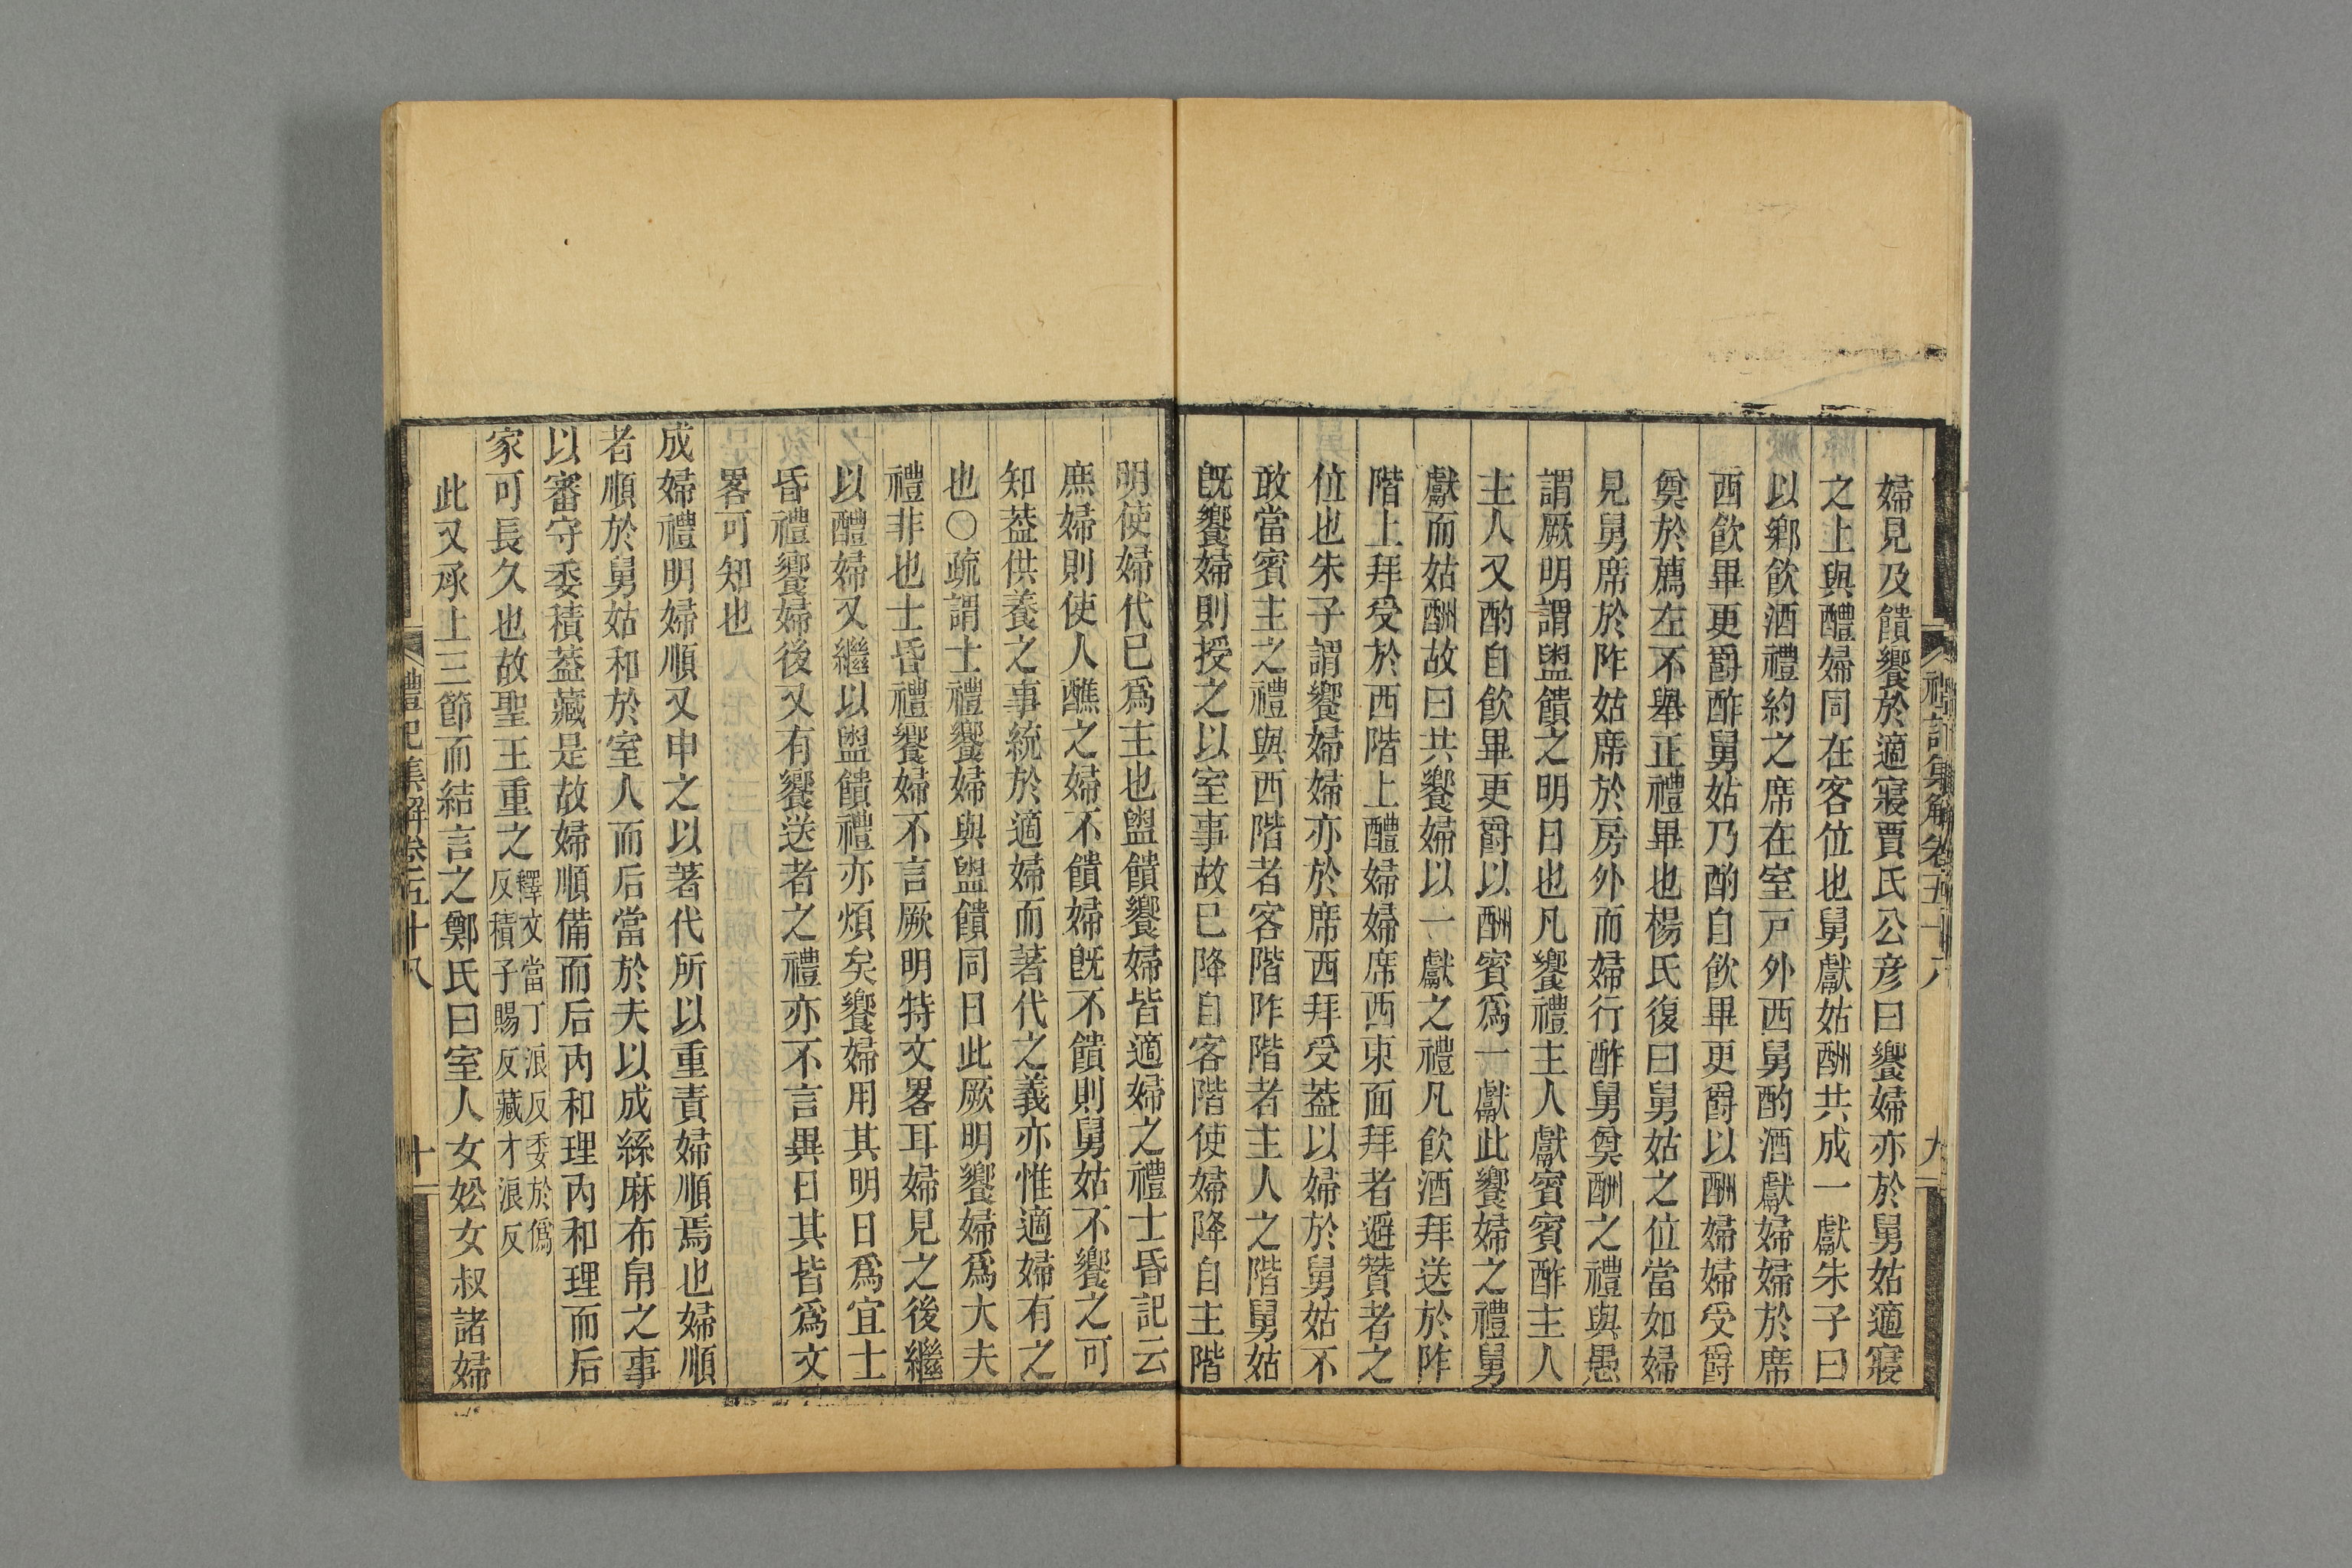 婦見及饋饗於適寢賈氏公彦曰饗婦亦於舅姑適寢
之上與醴婦同在客位也舅獻姑酬共成一獻朱子曰
以鄕飮酒禮約之席在室戸外西舅酌酒獻婦婦於席
西飮畢更爵酢舅姑乃酌自飮畢更爵以酬婦婦受爵
奠於薦左不舉正禮畢也楊氏復曰舅姑之位當如婦
見舅席於阼姑席於房外而婦行酢舅奠酬之禮與愚
謂厥明謂盥饋之明日也凡饗禮主人獻賓賓酢主人
主人又酌自飮畢更爵以酬賓爲一獻此饗婦之禮舅
獻而姑酬故曰共饗婦以一獻之禮凡飮酒拜送於阼
階上拜受於西階上醴婦婦席西東面拜者避贊者之
位也朱子謂饗婦婦亦於席西拜受葢以婦於舅姑不
敢當賓主之禮與西階者客階阼階者主人之階舅姑
旣饗婦則授之以室事故已降自客階使婦降自主階
明使婦代已爲主也盥饋饗婦皆適婦之禮士昏記云
庶婦則使人醮之婦不饋婦旣不饋則舅姑不饗之可
知葢供養之事統於適婦而著代之義亦惟適婦有之
也○疏謂士禮饗婦與盥饋同日此厥明饗婦爲大夫
禮非也士昏禮饗婦不言厥明特文畧耳婦見之後繼
以醴婦又繼以盥饋禮亦煩矣饗婦用其明日爲宜士
昏禮饗婦後又有饗送者之禮亦不言異日其皆爲文
畧可知也
成婦禮明婦順又申之以著代所以重責婦順焉也婦順
者順於舅姑和於室人而后當於夫以成絲麻布帛之事
以審守委積葢藏是故婦順備而后內和理內和理而后
家可長久也故聖王重之釋文當丁浪反委於僞反積子賜反藏才浪反
此又承上三節而結言之鄭氏曰室人女妐女叔諸婦
禮記集解卷五十八
九
禮記集解卷五十八
十